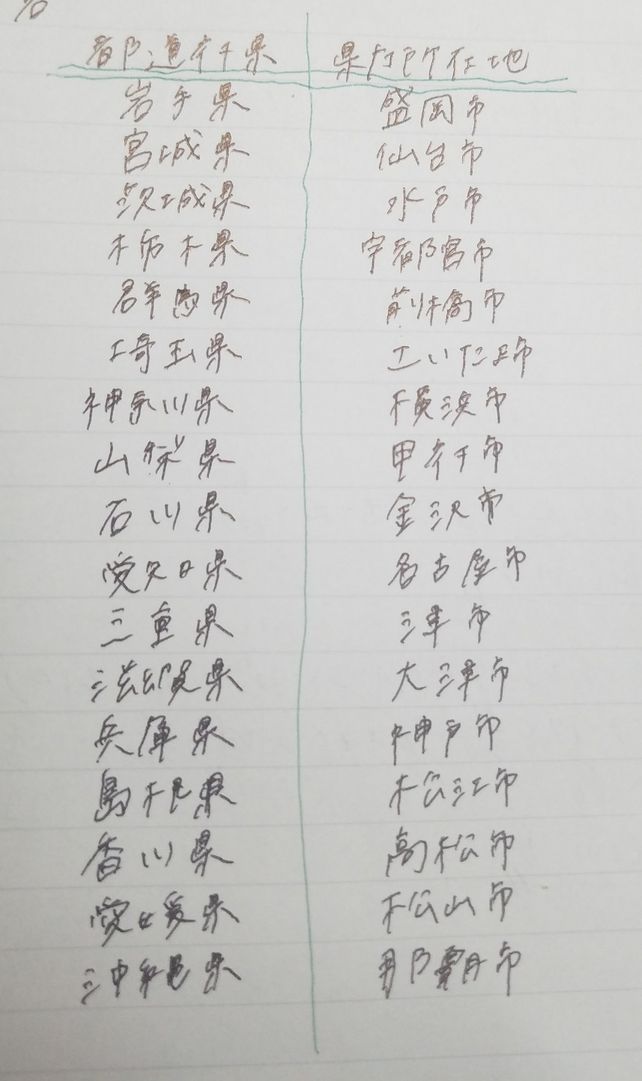 都道府県 県庁所在地
岩手県 盛岡市
宮城県 仙台市
茨城県 水戸市
栃木県 宇都宮市
群馬県 前橋市
埼玉県 さいたま市
神奈川県 横浜市
山梨県 甲府市
石川県 金沢市
愛知県 名古屋市
三重県 津市
滋賀県 大津市
兵庫県 神戸市
島根県 松江市
香川県 高松市
愛媛県 松山市
沖縄県 那覇市